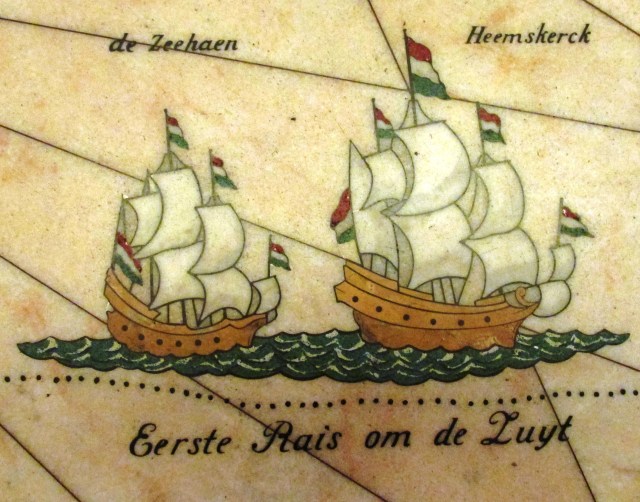 de Zeehaen
Heemskerck
Eerste Rais om de Zuyt